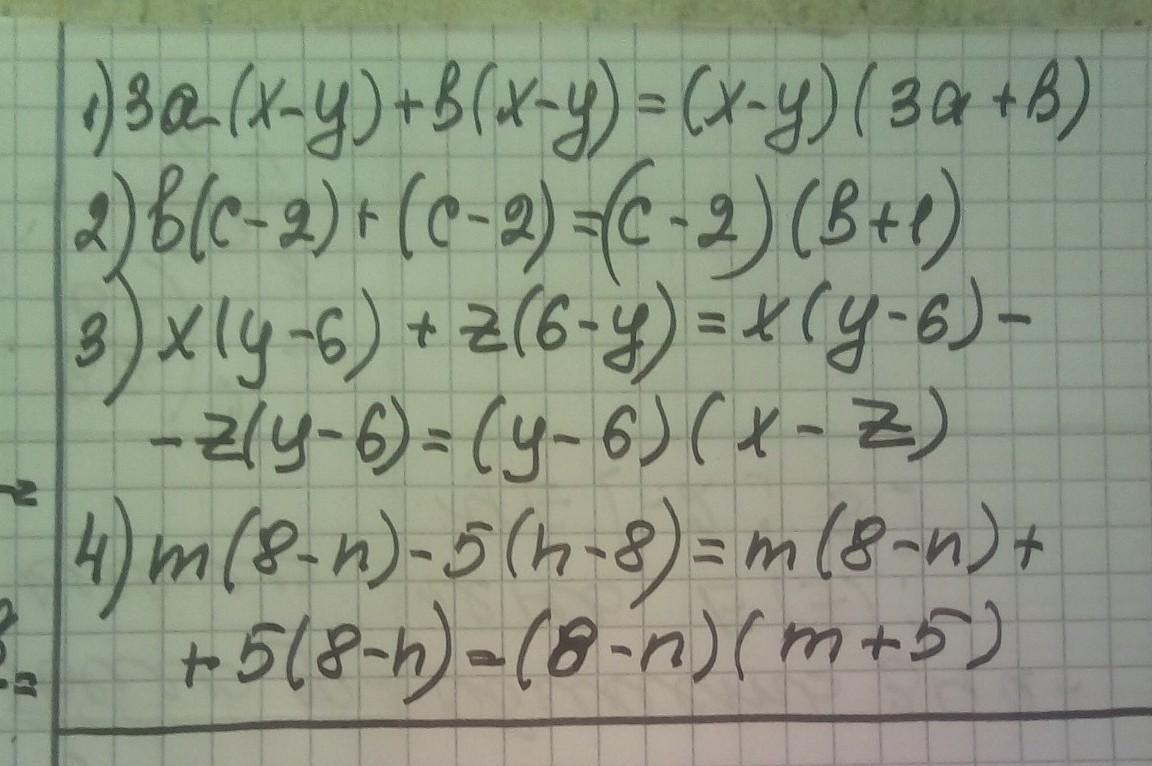 1) 3a(x-y)+b(x-y)=(x-y)(3a+b)
2) b(c-2)+(c-2)=(c-2)(b+1)
3) x(y-6)+z(6-y)=x(y-6)-
-z(y-6)=(y-6)(x-z)
4) m(8-n)-5(n-8)=m(8-n)+
+5(8-n)=(8-n)(m+5)